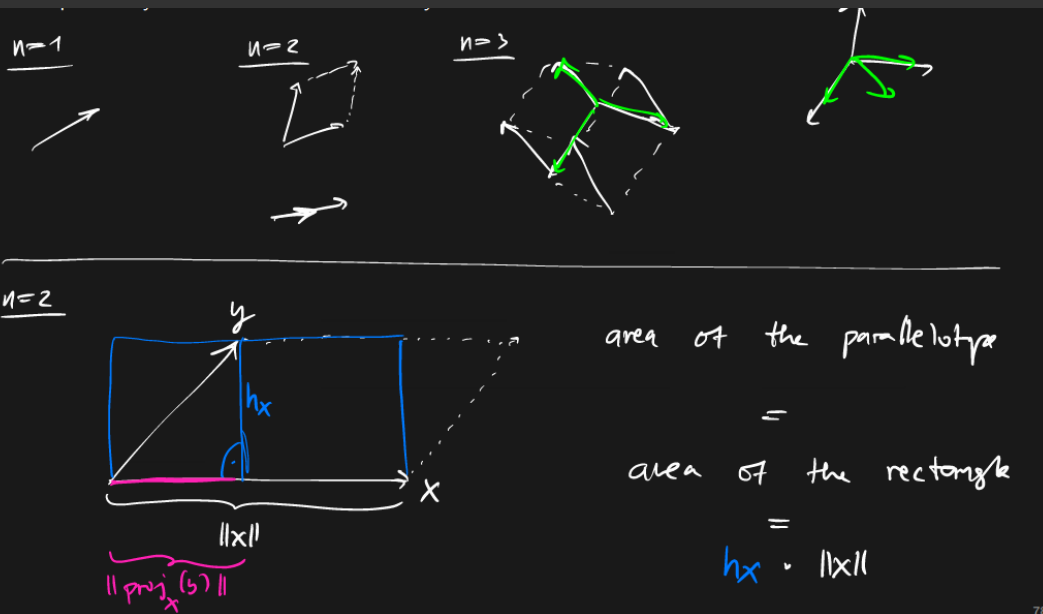 n=1
n=2
n=3
n=2
y
hx
x
||x||
||proj_x(y)||
area of the parallelotope
=
area of the rectangle
=
hx · ||x||